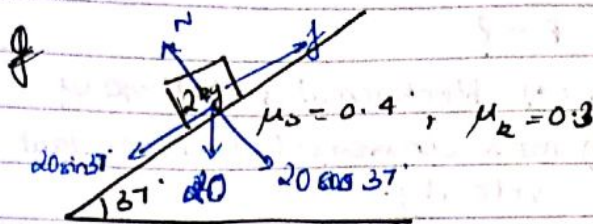 N f
2kg μs = 0.4 , μk = 0.3
20sin37° 20 20 cos 37°
37°